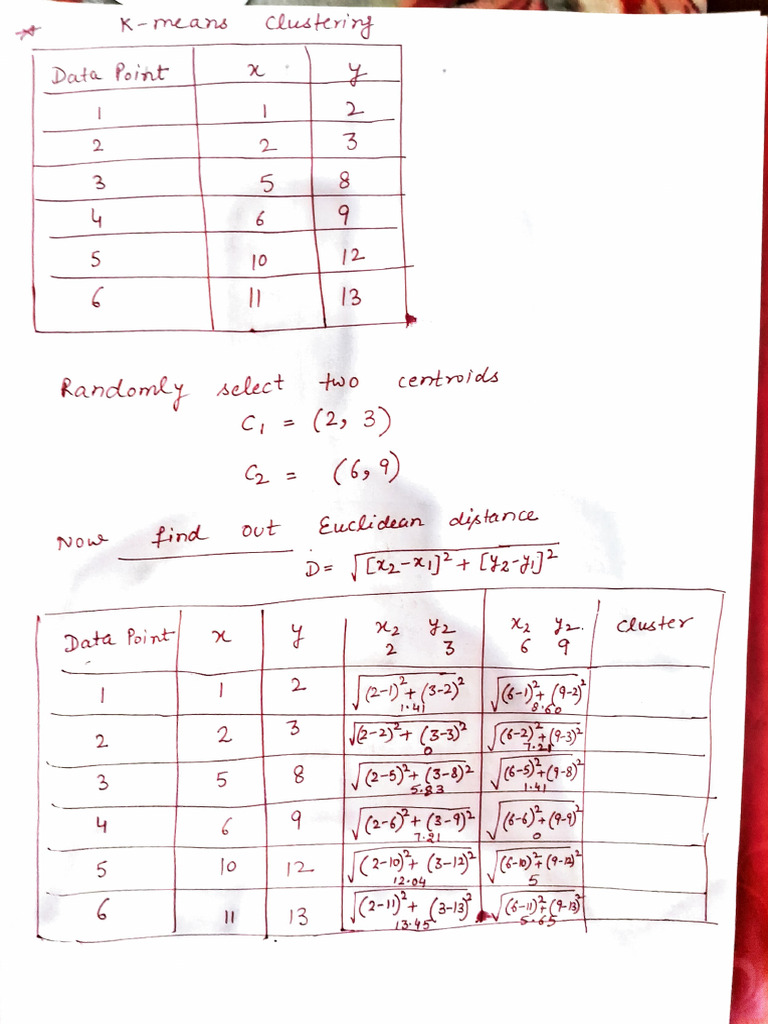 * K-means Clustering
Data Point x y
1 1 2
2 2 3
3 5 8
4 6 9
5 10 12
6 11 13
Randomly select two centroids
C₁ = (2, 3)
C₂ = (6, 9)
Now find out Euclidean distance
D = √[x₂-x₁]² + [y₂-y₁]²
Data Point x y x₂ y₂ x₂ y₂. cluster
2 3 6 9
1 1 2 √(2-1)² + (3-2)² √(6-1)² + (9-2)²
1.41 8.60
2 2 3 √(2-2)² + (3-3)² √(6-2)² + (9-3)²
0 7.21
3 5 8 √(2-5)² + (3-8)² √(6-5)² + (9-8)²
5.83 1.41
4 6 9 √(2-6)² + (3-9)² √(6-6)² + (9-9)²
7.21 0
5 10 12 √(2-10)² + (3-12)² √(6-10)² + (9-12)²
12.04 5
6 11 13 √(2-11)² + (3-13)² √(6-11)² + (9-13)²
13.45 5.65